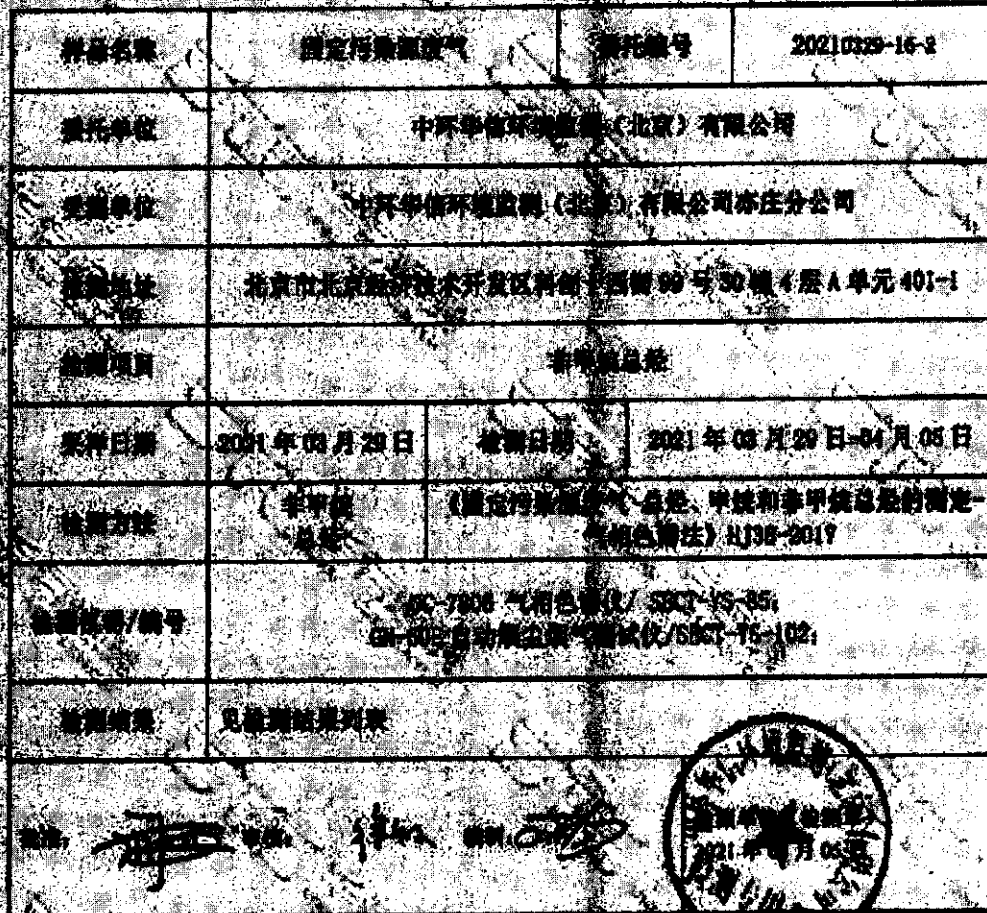 样品名称 固定污染源废气 委托编号 20210329-16-2
委托单位 中环华信环境监测（北京）有限公司
受测单位 中环华信环境监测（北京）有限公司亦庄分公司
北京市北京经济技术开发区科创十四街 99 号 30 幢 4 层 A 单元 401-1
检测项目 非甲烷总烃
采样日期 2021 年 03 月 29 日 检测日期 2021 年 03 月 29 日-04 月 05 日
检测方法 非甲烷 《固定污染源废气 总烃、甲烷和非甲烷总烃的测定
总烃 气相色谱法》HJ38-2017
气相色谱仪/
自动烟尘烟气测试仪/
检测结果 见检测结果列表
批准： 审核： 编制：
2021 年 月 05 日